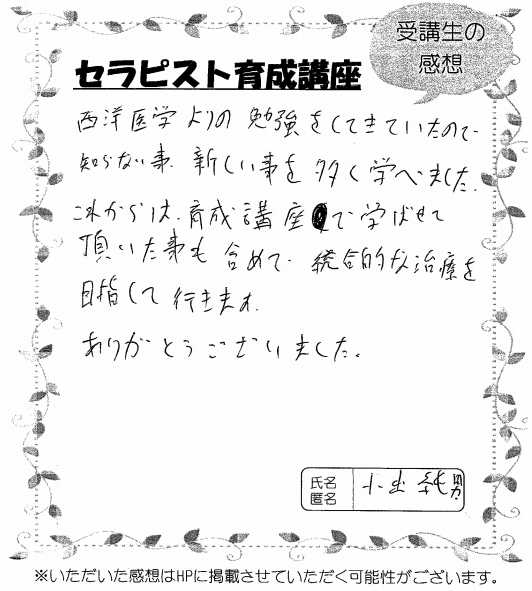 受講生の
感想
セラピスト育成講座
西洋医学よりの勉強をしてきていたので
知らない事、新しい事を多く学べました。
これからは、育成講座で学ばせて
頂いた事も含めて、統合的な治療を
目指して行きます。
ありがとうございました。
氏名
匿名
小出 純男
※いただいた感想はHPに掲載させていただく可能性がございます。